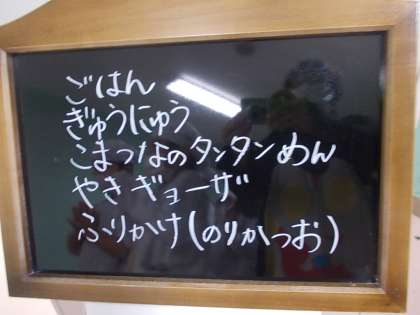 ごはん
ぎゅうにゅう
こまつなのタンタンめん
やきギョーザ
ふりかけ(のりかつお)